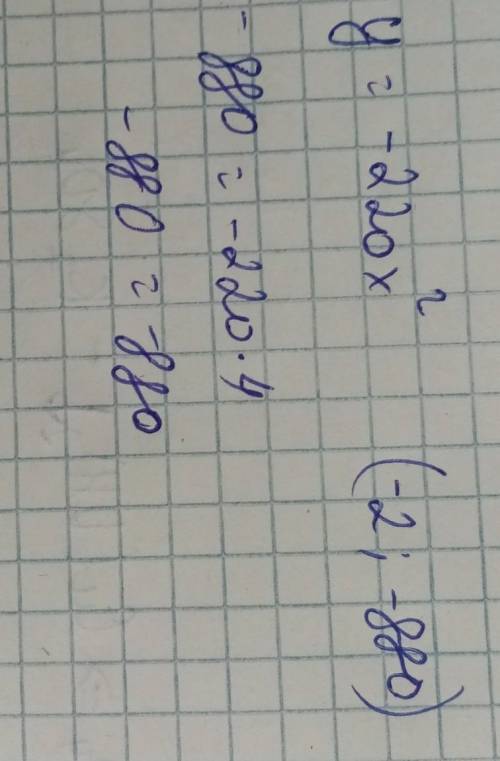 y = -220x² (-2; -880)
-880 = -220·4
-880 = -880